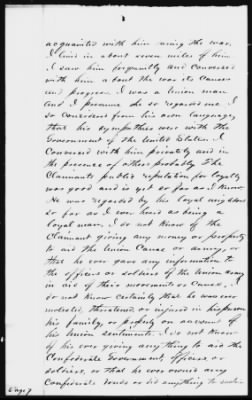 acquainted with him during the war.
I lived in about seven miles of him
I saw him frequently and conversed
with him about the war its causes
and progress. I was a Union man
and I presume he so regarded me. I
so considered from his own language,
that his sympathies were with the
Government of the United States. I
conversed with him privately and in
the presence of others probably. The
Claimants public reputation for loyalty
was good and is yet so far as I know.
He was regarded by his loyal neighbors
so far as I ever heard as being a
loyal man. I do not know of the
Claimant giving any money or property
to aid the Union Cause or army, or
that he ever gave any information to
the officers or soldiers of the Union army
in aid of their movements or cause. I
do not know certainly that he was ever
molested, threatened or injured in his person
his family, or property on account of
his Union sentiments. I do not know
of his ever giving any thing to aid the
Confederate Government, officers or
soldiers, or that he ever owned any
Confederate bonds or did anything to
Page 7